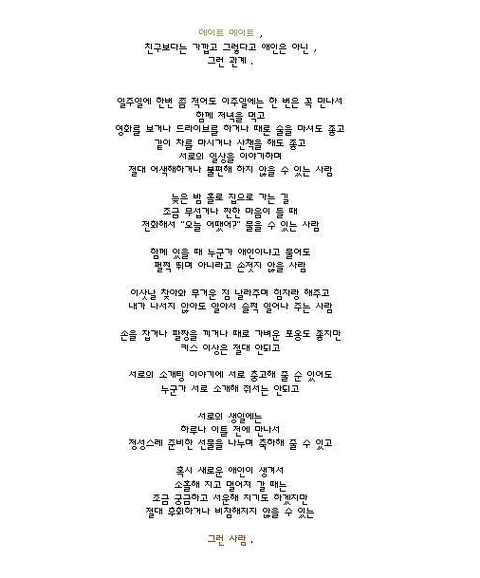 데이트 메이트 ,
친구보다는 가깝고 그렇다고 애인은 아닌 ,
그런 관계 .
일주일에 한번 쯤 적어도 이주일에는 한 번은 꼭 만나서
함께 저녁을 먹고
영화를 보거나 드라이브를 하거나 때론 술을 마셔도 좋고
같이 차를 마시거나 산책을 해도 좋고
서로의 일상을 이야기하며
절대 어색해하거나 불편해 하지 않을 수 있는 사람
늦은 밤 홀로 집으로 가는 길
조금 무섭거나 짠한 마음이 들 때
전화해서 "오늘 어땠어?" 물을 수 있는 사람
함께 있을 때 누군가 애인이냐고 물어도
펄쩍 뛰며 아니라고 손젓지 않을 사람
이삿날 찾아와 무거운 짐 날라주며 힘자랑 해주고
내가 나서지 않아도 알아서 슬쩍 일어나 주는 사람
손을 잡거나 팔짱을 끼거나 때로 가벼운 포옹도 좋지만
키스 이상은 절대 안되고
서로의 소개팅 이야기에 서로 충고해 줄 순 있어도
누군가 서로 소개해 줘서는 안되고
서로의 생일에는
하루나 이틀 전에 만나서
정성스레 준비한 선물을 나누며 축하해 줄 수 있고
혹시 새로운 애인이 생겨서
소홀해 지고 멀어져 갈 때는
조금 궁금하고 서운해 지기도 하겠지만
절대 후회하거나 비참해지지 않을 수 있는
그런 사람 .